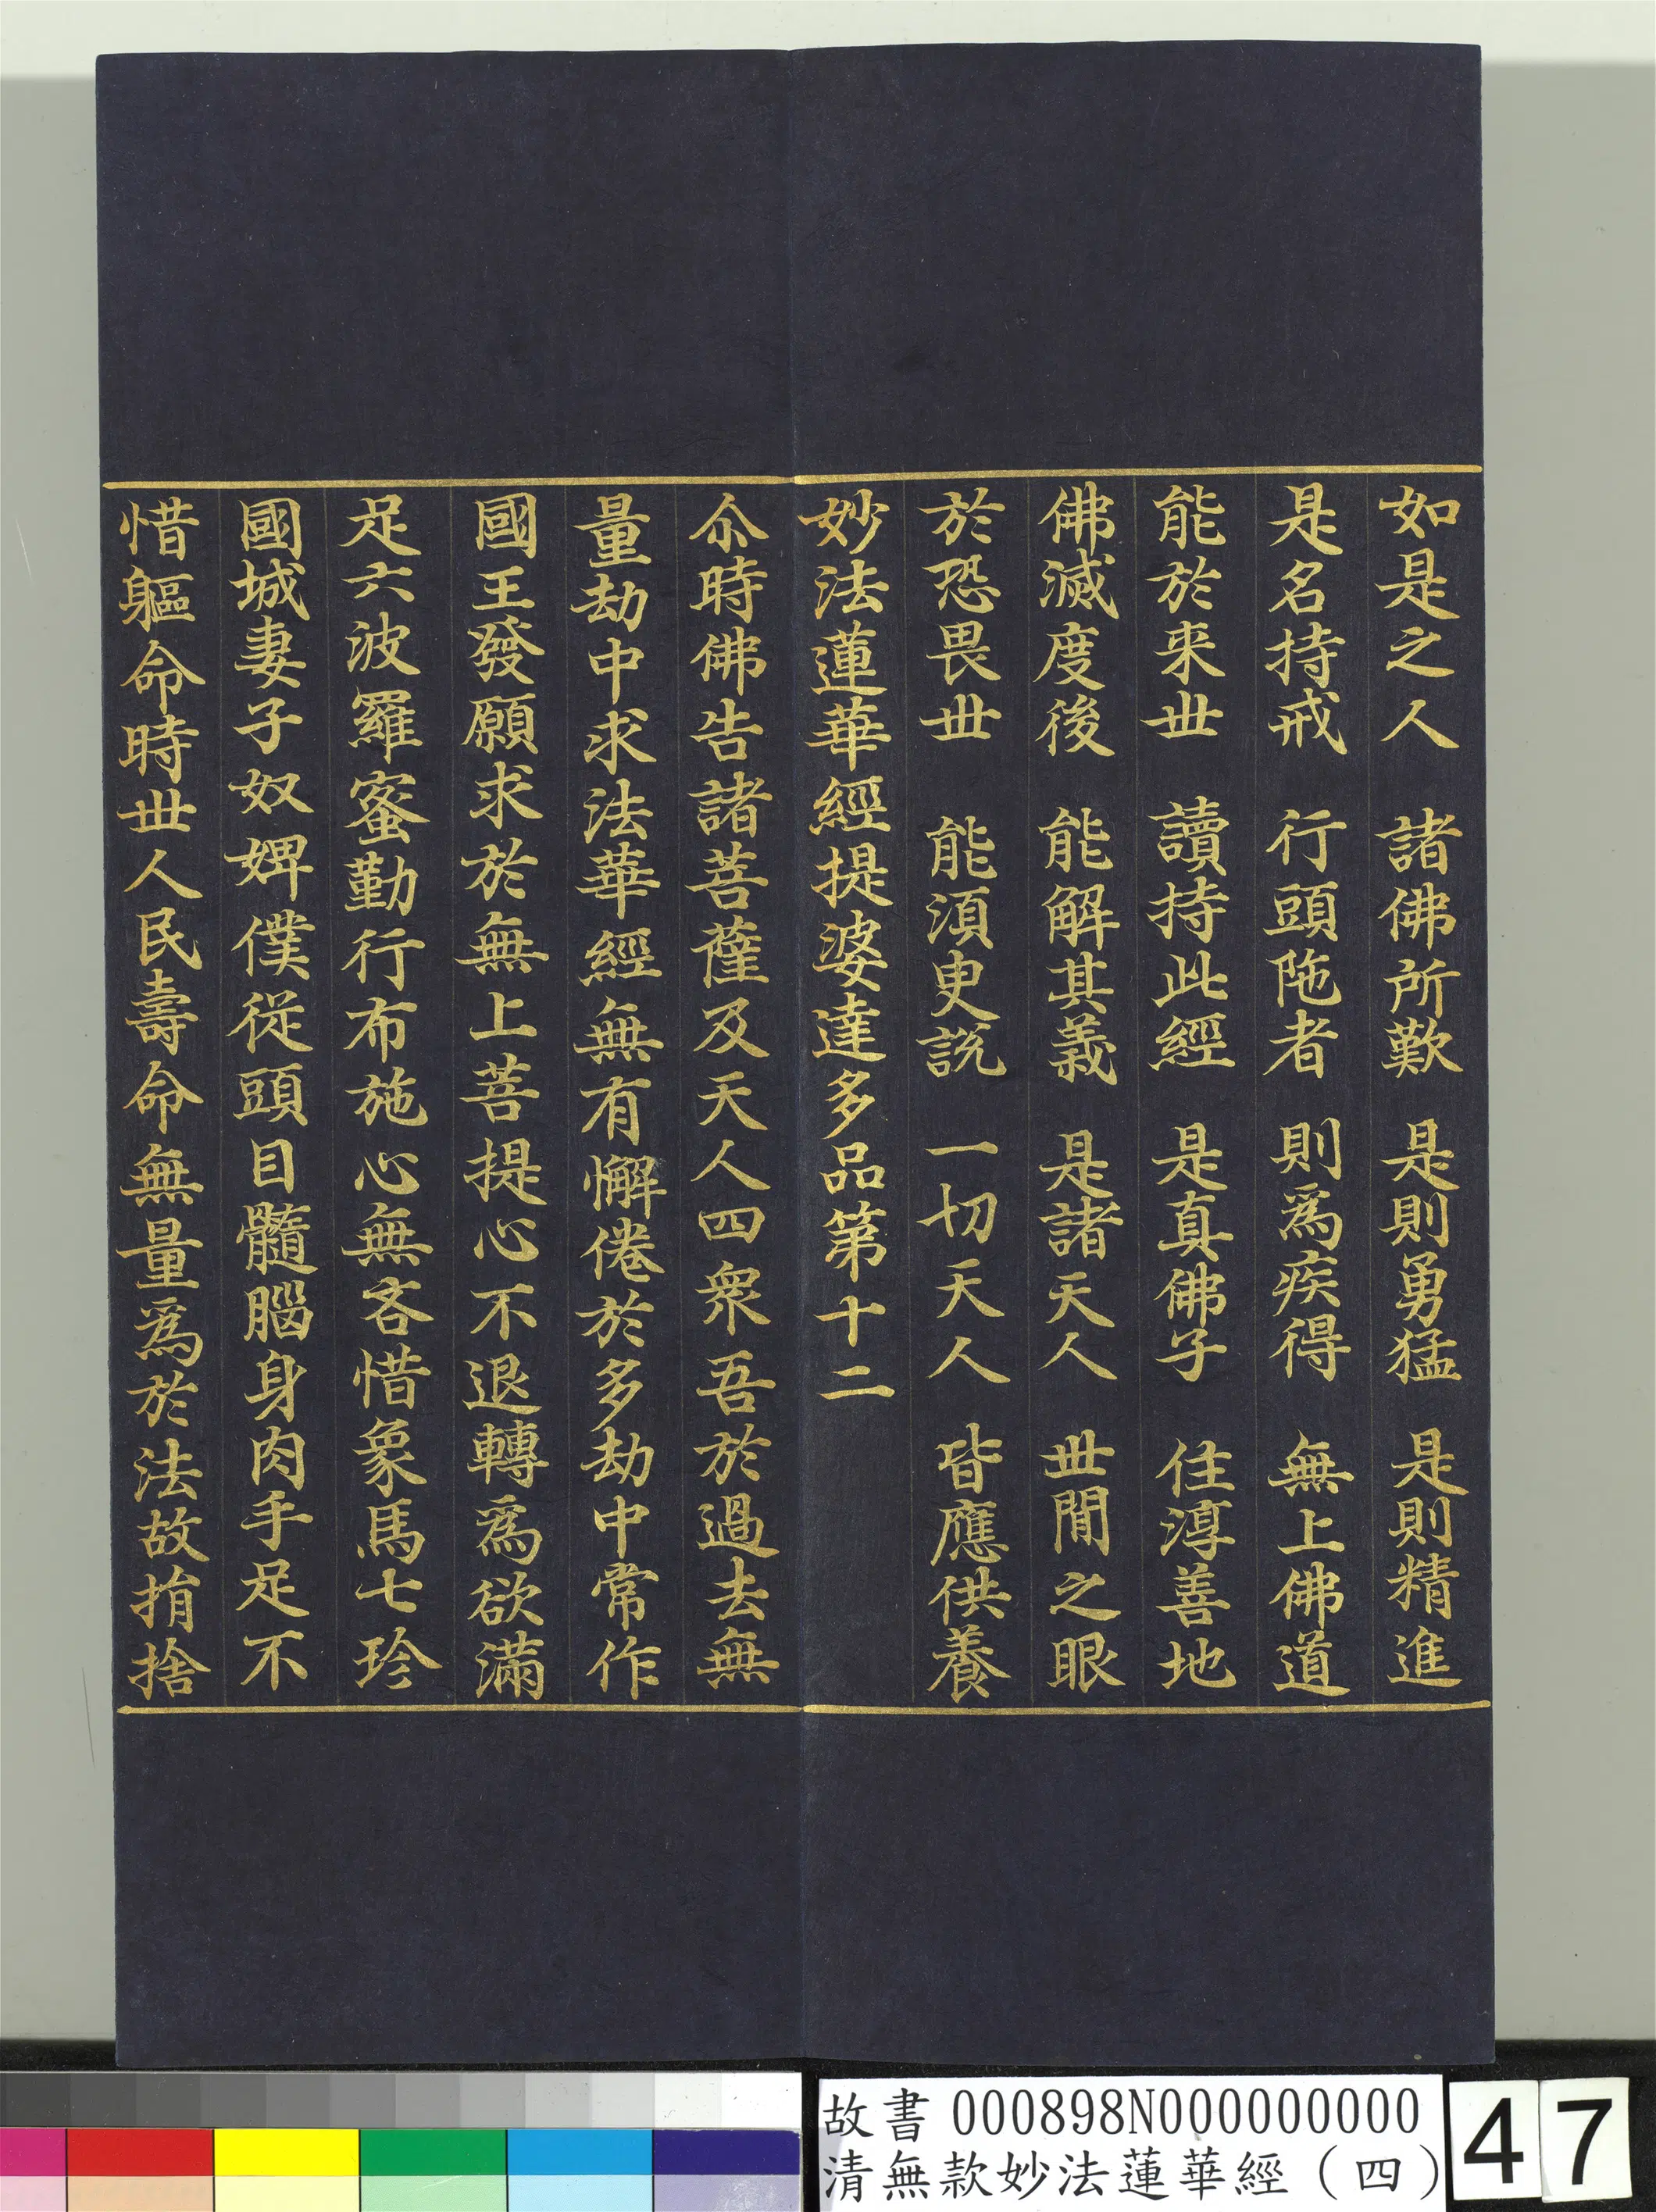 如是之人　諸佛所歎　是則勇猛　是則精進
是名持戒　行頭陁者　則爲疾得　無上佛道
能於来丗　讀持此經　是真佛子　住淳善地
佛滅度後　能解其義　是諸天人　丗閒之眼
於恐畏丗　能湏臾說　一切天人　皆應供養
妙法蓮華經提婆達多品第十二
尒時佛告諸菩薩及天人四衆吾於過去無
量劫中求法華經無有懈倦於多劫中常作
國王發願求於無上菩提心不退轉爲欲滿
足六波羅蜜勤行布施心無吝惜象馬七珍
國城妻子奴婢僕從頭目髓腦身肉手足不
惜軀命時丗人民壽命無量爲於法故捐捨
故書 000898N000000000
清無款妙法蓮華經（四）
47